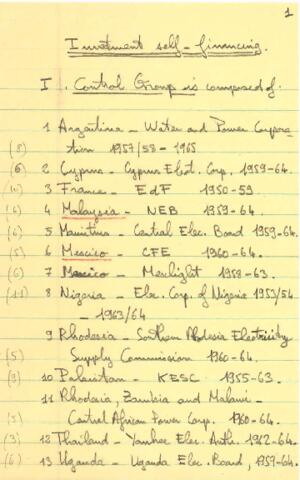 1
Investment self-financing.
I. Control Group is composed of:
1 Argentina - Water and Power Corpora-
(8) tion 1957/58 - 1965
(6) 2 Cyprus - Cyprus Elect. Corp. 1959-64.
3 France - EdF 1950-59
(4) 4 Malaysia - NEB 1959-64.
5 Mauritius - Central Elec. Board 1959-64.
(5) 6 Mexico - CFE 1960-64.
7 Mexico - Mexlight 1958-63.
(11) 8 Nigeria - Elec. Corp. of Nigeria 1953/54
- 1963/64
9 Rhodesia - Southern Rhodesia Electricity
(5) Supply Commission 1960-64.
10 Pakistan - KESC 1955-63.
11 Rhodesia, Zambia and Malawi -
(5) Central African Power Corp. 1960-64.
(3) 12 Thailand - Yanhee Elec. Auth. 1962-64.
(6) 13 Uganda - Uganda Elec. Board, 1959-64.